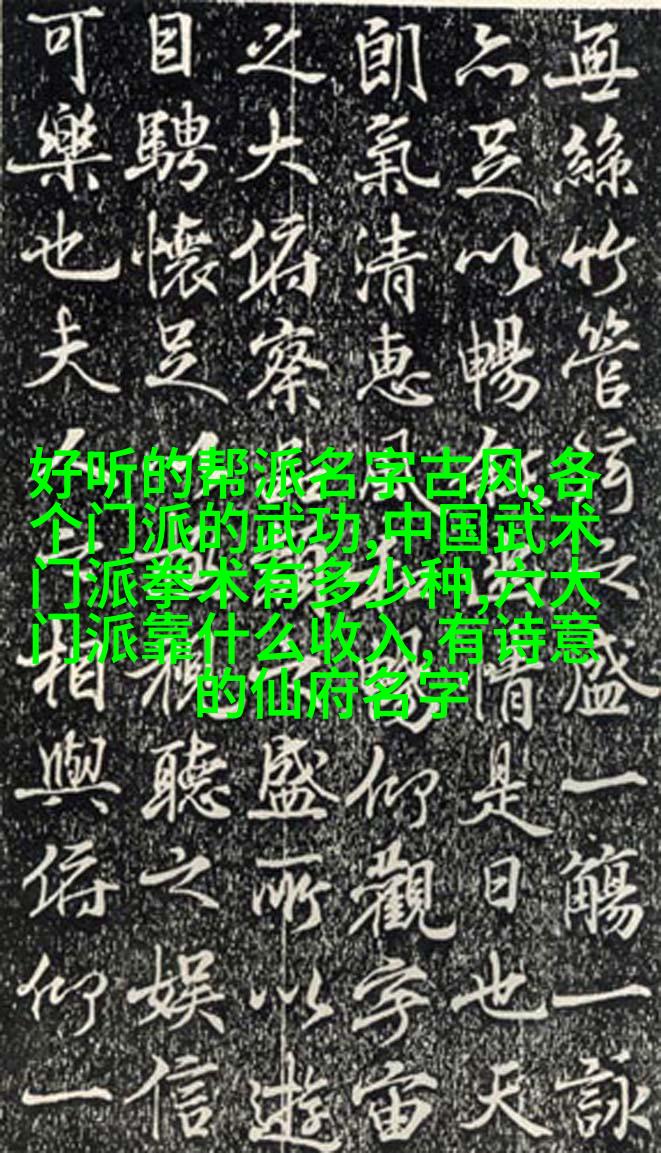 無絲竹管弦之盛一觴一詠
亦足以暢情是日也天
朗氣清惠風暢仰觀宇宙
之大俯察品盛所以遊
目騁懷足視聽之娛信
可樂也夫相與俯仰一
好听的帮派名字古风,各
个门派的武功,中国武术
门派拳术有多少种,六大
门派靠什么收入,有诗意
的仙府名字